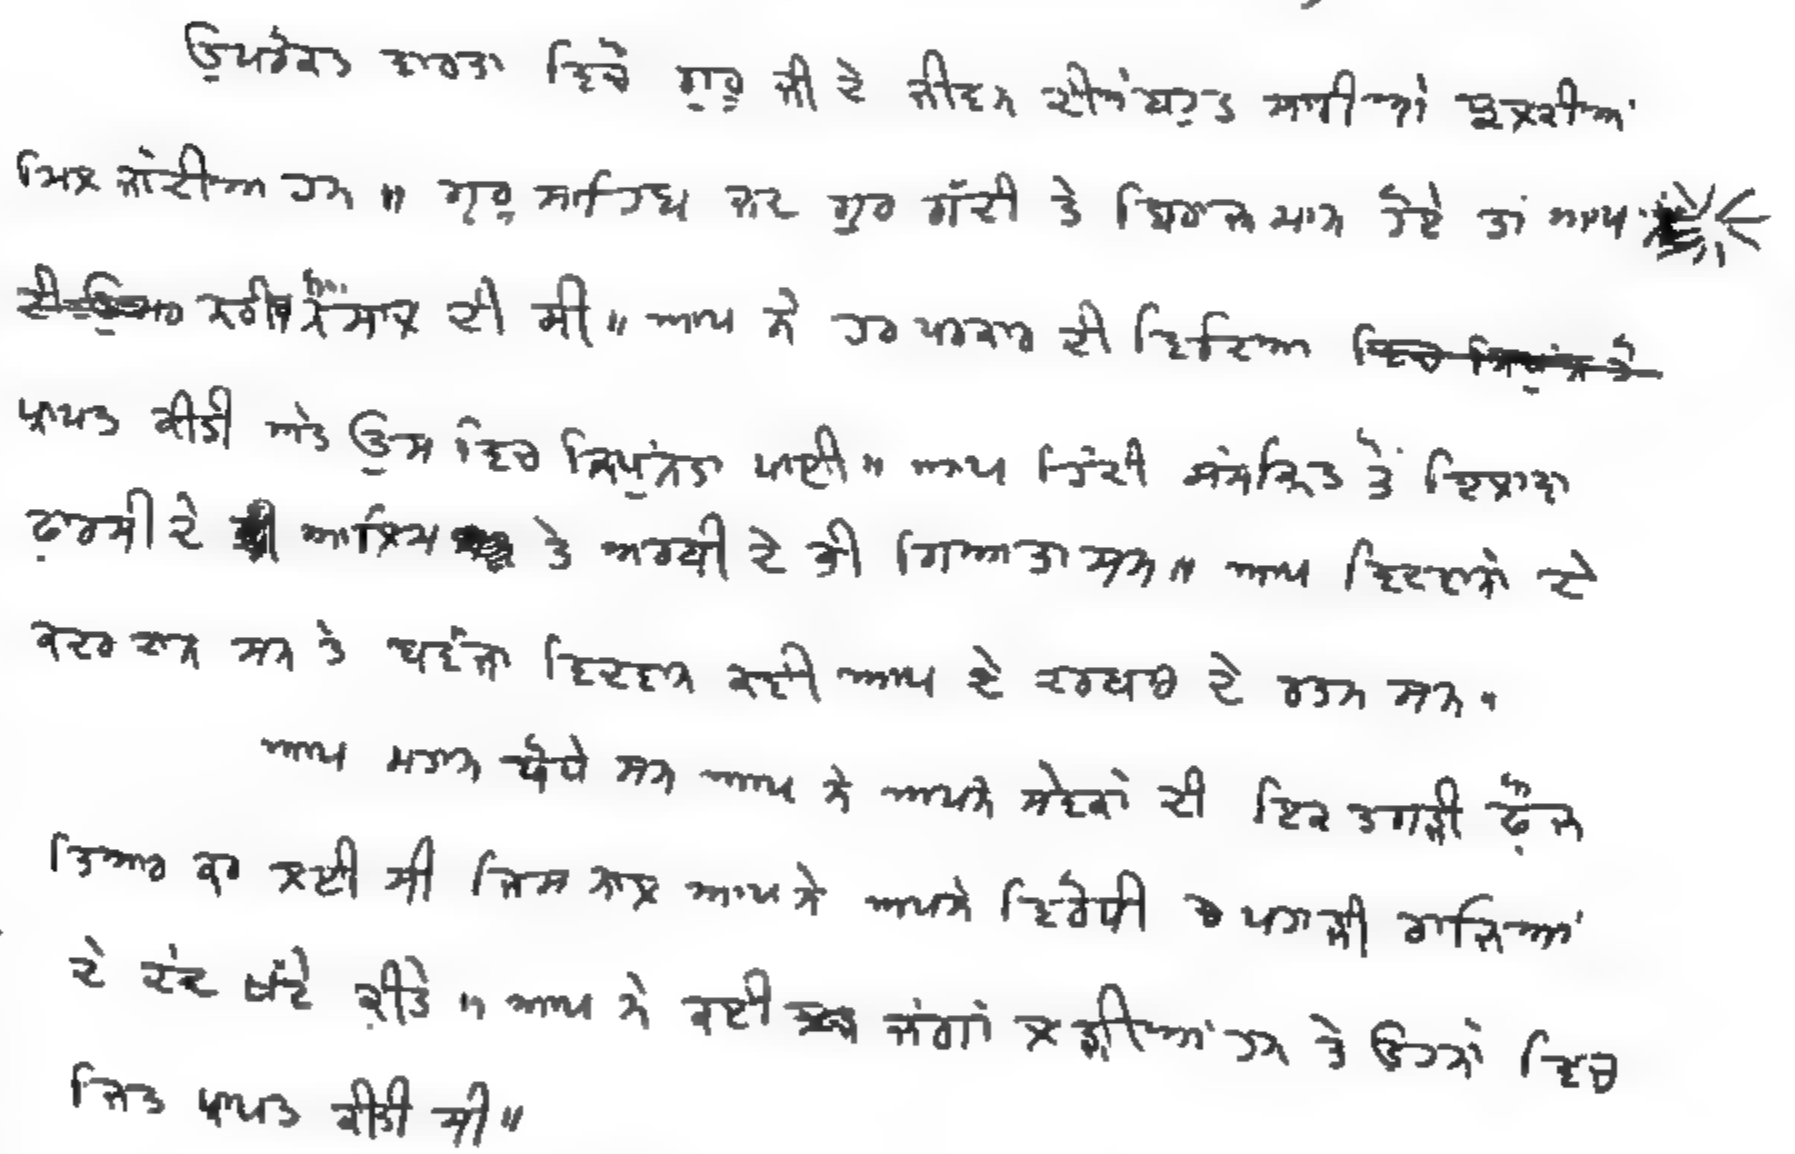 ਉਪਰੋਕਤ ਵਾਰਤਾ ਵਿਚੋਂ ਗੁਰੂ ਜੀ ਦੇ ਜੀਵਨ ਦੀਆਂ ਬਹੁਤ ਸਾਰੀਆਂ ਝਲਕੀਆਂ
ਮਿਲ ਜਾਂਦੀਆਂ ਹਨ॥ ਗੁਰੂ ਸਾਹਿਬ ਜਦ ਗੁਰ ਗੱਦੀ ਤੇ ਬਿਰਾਜਮਾਨ ਹੋਏ ਤਾਂ ਆਪ
ਦੀ ਉਮਰ ਨੌਂ ਸਾਲ ਦੀ ਸੀ॥ ਆਪ ਨੇ ਹਰ ਪਰਕਾਰ ਦੀ ਵਿਦਿਆ
ਪ੍ਰਾਪਤ ਕੀਤੀ ਅਤੇ ਉਸ ਵਿਚ ਨਿਪੁੰਨਤਾ ਪਾਈ॥ ਆਪ ਹਿੰਦੀ ਸੰਸਕ੍ਰਿਤ ਤੋਂ ਇਲਾਵਾ
ਫ਼ਾਰਸੀ ਦੇ ਆਲਿਮ ਤੇ ਅਰਬੀ ਦੇ ਭੀ ਗਿਆਤਾ ਸਨ॥ ਆਪ ਵਿਦਵਾਨਾਂ ਦੇ
ਕਦਰਦਾਨ ਸਨ ਤੇ ਬਵੰਜਾ ਵਿਦਵਾਨ ਕਵੀ ਆਪ ਦੇ ਦਰਬਾਰ ਦੇ ਰਤਨ ਸਨ।
ਆਪ ਮਹਾਨ ਯੋਧੇ ਸਨ ਆਪ ਨੇ ਆਪਨੇ ਸੇਵਕਾਂ ਦੀ ਇਕ ਤਗੜੀ ਫ਼ੌਜ
ਤਿਆਰ ਕਰ ਲਈ ਸੀ ਜਿਸ ਨਾਲ ਆਪ ਨੇ ਅਪਨੇ ਵਿਰੋਧੀ ਪਹਾੜੀ ਰਾਜਿਆਂ
ਦੇ ਦੰਦ ਖੱਟੇ ਕੀਤੇ॥ ਆਪ ਨੇ ਕਈ ਜੰਗਾਂ ਲੜੀਆਂ ਹਨ ਤੇ ਉਹਨਾਂ ਵਿਚ
ਜਿਤ ਪ੍ਰਾਪਤ ਕੀਤੀ ਸੀ॥